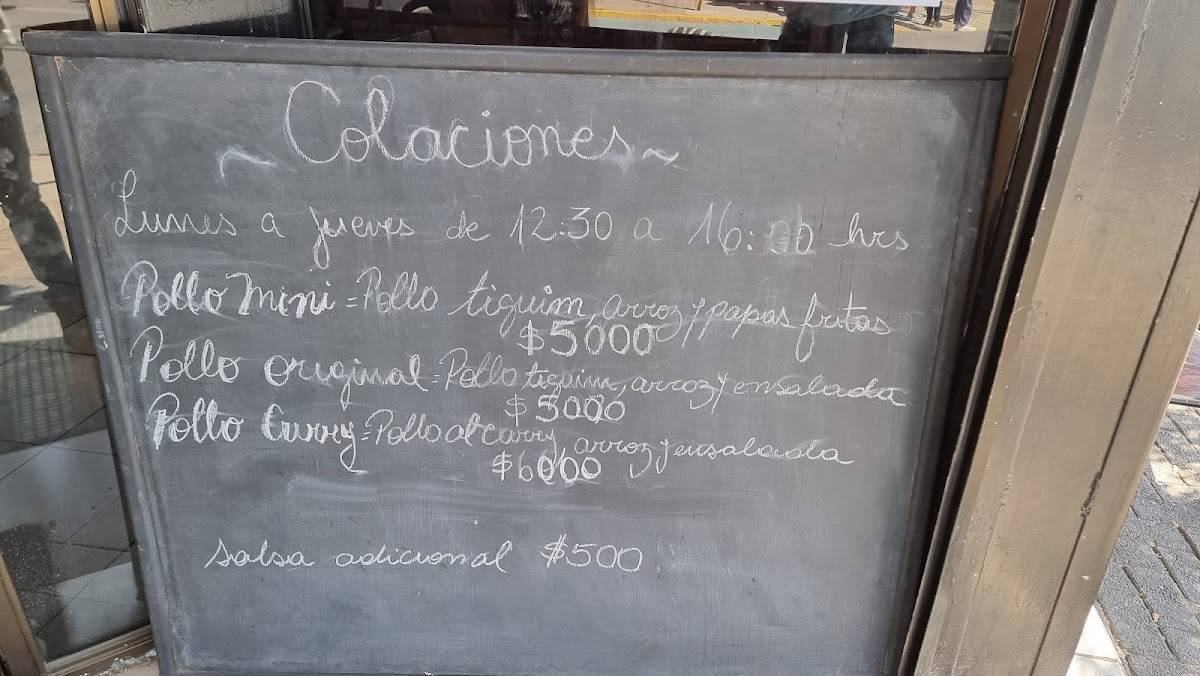 ~ Colaciones ~
Lunes a jueves de 12:30 a 16:00 hrs
Pollo Mini = Pollo tiquim, arroz y papas fritas
$5000
Pollo original = Pollo tiquim, arroz y ensalada
$5000
Pollo Curry = Pollo al curry, arroz y ensalada
$6000
Salsa adicional $500